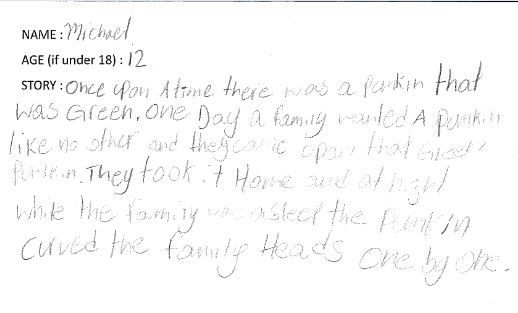 NAME : Michael
AGE (if under 18) : 12
STORY : Once upon A time there was a Punkin that
was Green. One Day a family wanted A Punkin
like no other and they came opon that Green
Punkin. They took it Home and at night
while the family was asleep the Punkin
curved the family Heads One by One.